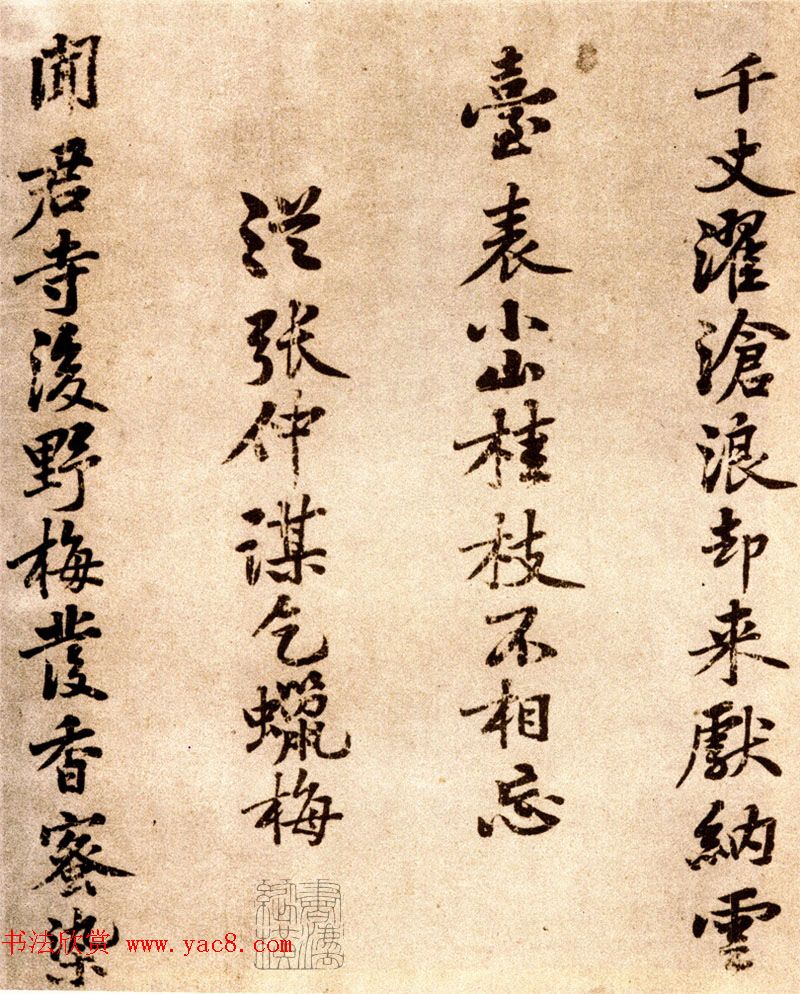 千丈濯滄浪却来獻納雲
臺表小山桂枝不相忘
從张仲謀乞蠟梅
聞君寺後野梅發香蜜染
书法欣赏 www.yac8.com